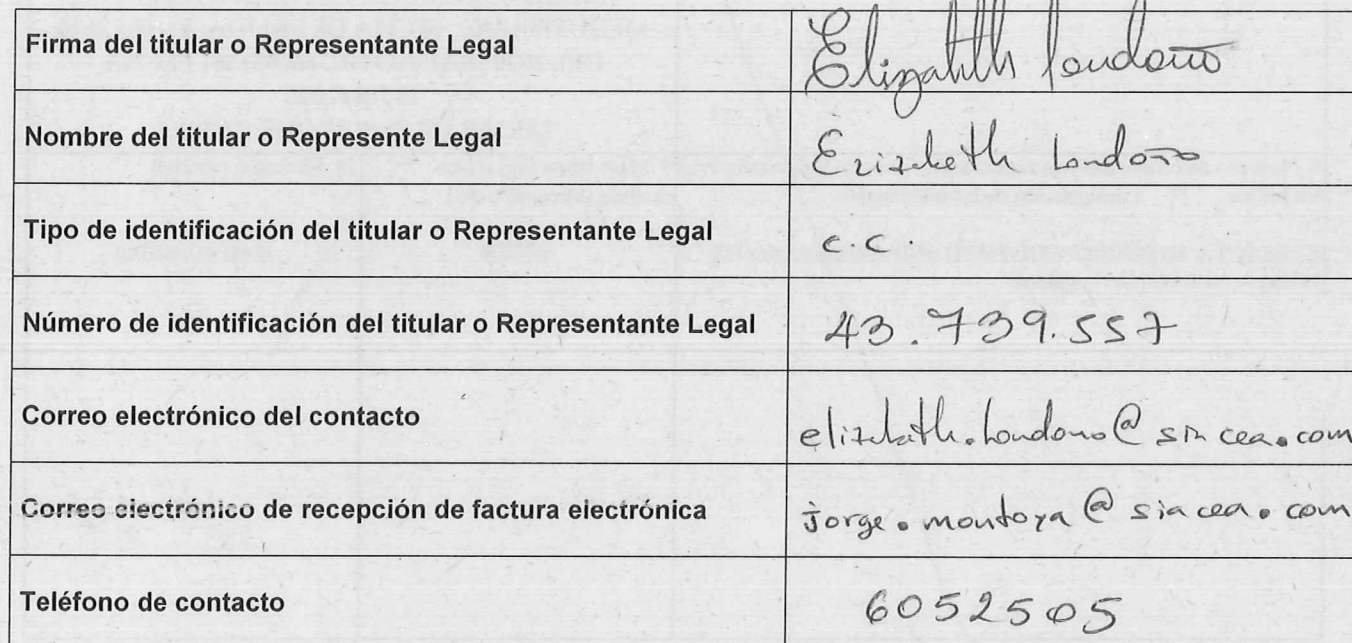 Firma del titular o Representante Legal
Elizabeth Londoño
Nombre del titular o Represente Legal
Elizabeth Londoño
Tipo de identificación del titular o Representante Legal
c.c.
Número de identificación del titular o Representante Legal
43.739.557
Correo electrónico del contacto
elizabeth.londono@siacea.com
Correo electrónico de recepción de factura electrónica
jorge.montoya@siacea.com
Teléfono de contacto
6052505